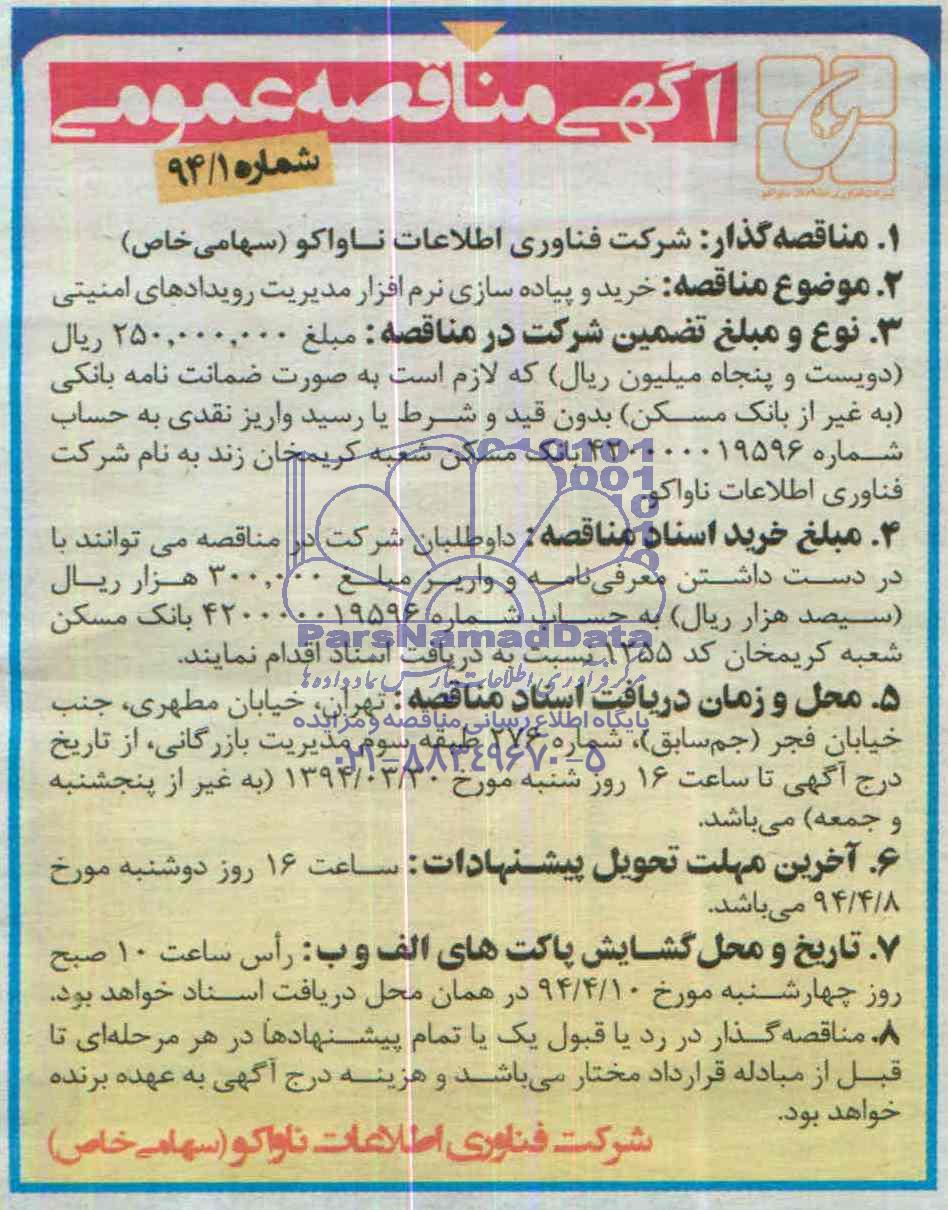 آگهی مناقصه عمومی
شماره ۹۴/۱
شرکت فناوری اطلاعات ناواکو
۱. مناقصه‌گذار: شرکت فناوری اطلاعات ناواکو (سهامی خاص)
۲. موضوع مناقصه: خرید و پیاده سازی نرم افزار مدیریت رویدادهای امنیتی
۳. نوع و مبلغ تضمین شرکت در مناقصه: مبلغ ۲۵۰,۰۰۰,۰۰۰ ریال
(دویست و پنجاه میلیون ریال) که لازم است به صورت ضمانت نامه بانکی
(به غیر از بانک مسکن) بدون قید و شرط یا رسید واریز نقدی به حساب
شماره ۴۲۰۰۰۰۰۰۱۹۵۹۶ بانک مسکن شعبه کریمخان زند به نام شرکت
فناوری اطلاعات ناواکو.
۴. مبلغ خرید اسناد مناقصه: داوطلبان شرکت در مناقصه می توانند با
در دست داشتن معرفی‌نامه و واریز مبلغ ۳۰۰,۰۰۰ هزار ریال
(سیصد هزار ریال) به حساب شماره ۴۲۰۰۰۰۰۰۱۹۵۹۶ بانک مسکن
ParsNamadData
شعبه کریمخان کد ۱۲۵۵ نسبت به دریافت اسناد اقدام نمایند.
مرکز فرآوری اطلاعات پارس نماد داده‌ها
۵. محل و زمان دریافت اسناد مناقصه: تهران، خیابان مطهری، جنب
پایگاه اطلاع رسانی مناقصه و مزایده
خیابان فجر (جم‌سابق)، شماره ۲۷۶ طبقه سوم مدیریت بازرگانی، از تاریخ
۰۲۱-۸۸۳۴۹۶۷۰-۵
درج آگهی تا ساعت ۱۶ روز شنبه مورخ ۱۳۹۴/۰۳/۳۰ (به غیر از پنجشنبه
و جمعه) می‌باشد.
۶. آخرین مهلت تحویل پیشنهادات: ساعت ۱۶ روز دوشنبه مورخ
۹۴/۴/۸ می‌باشد.
۷. تاریخ و محل گشایش پاکت های الف و ب: رأس ساعت ۱۰ صبح
روز چهارشنبه مورخ ۹۴/۴/۱۰ در همان محل دریافت اسناد خواهد بود.
۸. مناقصه‌گذار در رد یا قبول یک یا تمام پیشنهادها در هر مرحله‌ای تا
قبل از مبادله قرارداد مختار می‌باشد و هزینه درج آگهی به عهده برنده
خواهد بود.
شرکت فناوری اطلاعات ناواکو (سهامی خاص)